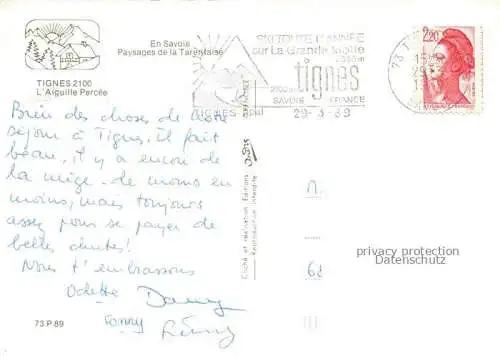 En Savoie
Paysages de la Tarentaise
TIGNES 2100
L'Aiguille Percée
SKI TOUTE L'ANNÉE
sur La Grande Motte
tignes
SAVOIE FRANCE
29-3-89
2,20
73 T
Bien des choses de notre
séjour à Tignes, il fait
beau, il y a encore de
la neige - de moins en
moins, mais toujours
assez pour se payer de
belles chutes!
Nous t'embrassons
Odette Danny
Fanny Rémy
73 P 89
Cliché et réalisation Editions
Reproduction interdite
M.
privacy protection
Datenschutz